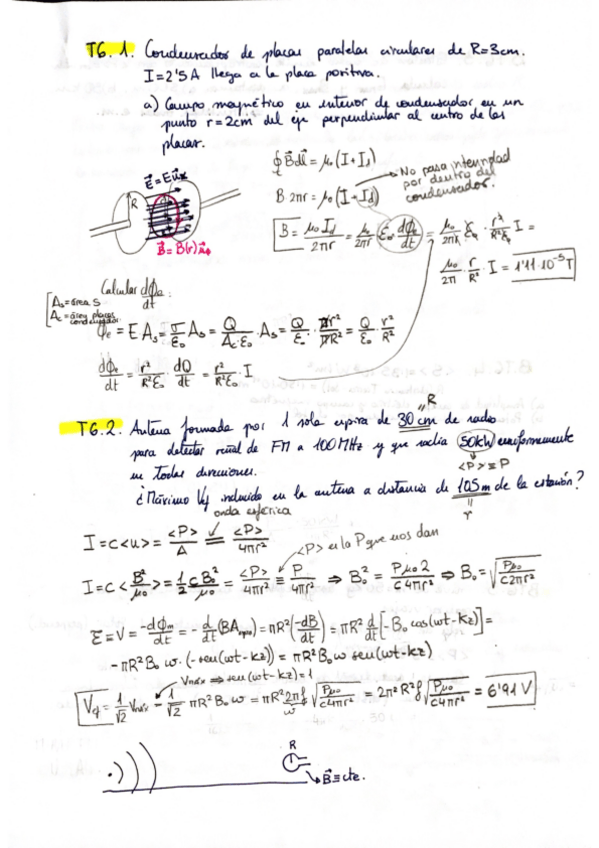 T6.1. Condensador de placas paralelas circulares de R=3cm.
I=2'5A llega a la placa positiva.
a) Campo magnético en interior de condensador en un
punto r=2cm del eje perpendicular al centro de las
placas.
∮B⃗dl⃗ = μ₀(I+I_d)
B 2πr = μ₀(I+I_d)
No pasa intensidad
por dentro del
condensador.
E⃗=Eu⃗x
R
B⃗=B(r)u⃗φ
B = μ₀I_d/2πr = μ₀/2πr ε₀ dϕe/dt = μ₀/2πr ε₀ · r²/R²ε₀ I =
μ₀/2π · r/R² · I = 1'11·10⁻⁵T
Calcular dϕe/dt:
As=área S
Ac=área placas
condensador
ϕe = E As = σ/ε₀ As = Q/Ac·ε₀ · As = Q/ε₀ · πr²/πR² = Q/ε₀ · r²/R²
dϕe/dt = r²/R²ε₀ · dQ/dt = r²/R²ε₀ · I
T6.2. Antena formada por 1 sola espira de 30cm de radio
=R
para detectar señal de FM a 100MHz y que radia 50kW uniformemente
en todas direcciones.
<P>≡P
¿Máximo Vef inducido en la antena a distancia de 105m de la estación?
r
onda esférica
I=c<u> = <P>/A = <P>/4πr²
<P> es la P que nos dan
I=c<B²/μ₀> = 1/2 cB₀²/μ₀ = <P>/4πr² ≡ P/4πr² ⇒ B₀² = Pμ₀2/c4πr² ⇒ B₀=√(Pμ₀/c2πr²)
ℰ=V= -dϕm/dt = -d/dt(BA) = πR²(-dB/dt) = πR² d/dt[-B₀cos(ωt-kz)] =
-πR²B₀ω·(-sen(ωt-kz)) = πR²B₀ω sen(ωt-kz)
Vmáx ⇒ sen(ωt-kz)=1
Vef = 1/√2 Vmáx = 1/√2 πR²B₀ω = πR² 2πf √(Pμ₀/c4πr²) = 2π²R²f √(Pμ₀/c4πr²) = 6'91V
ω
R
B⃗≡cte.